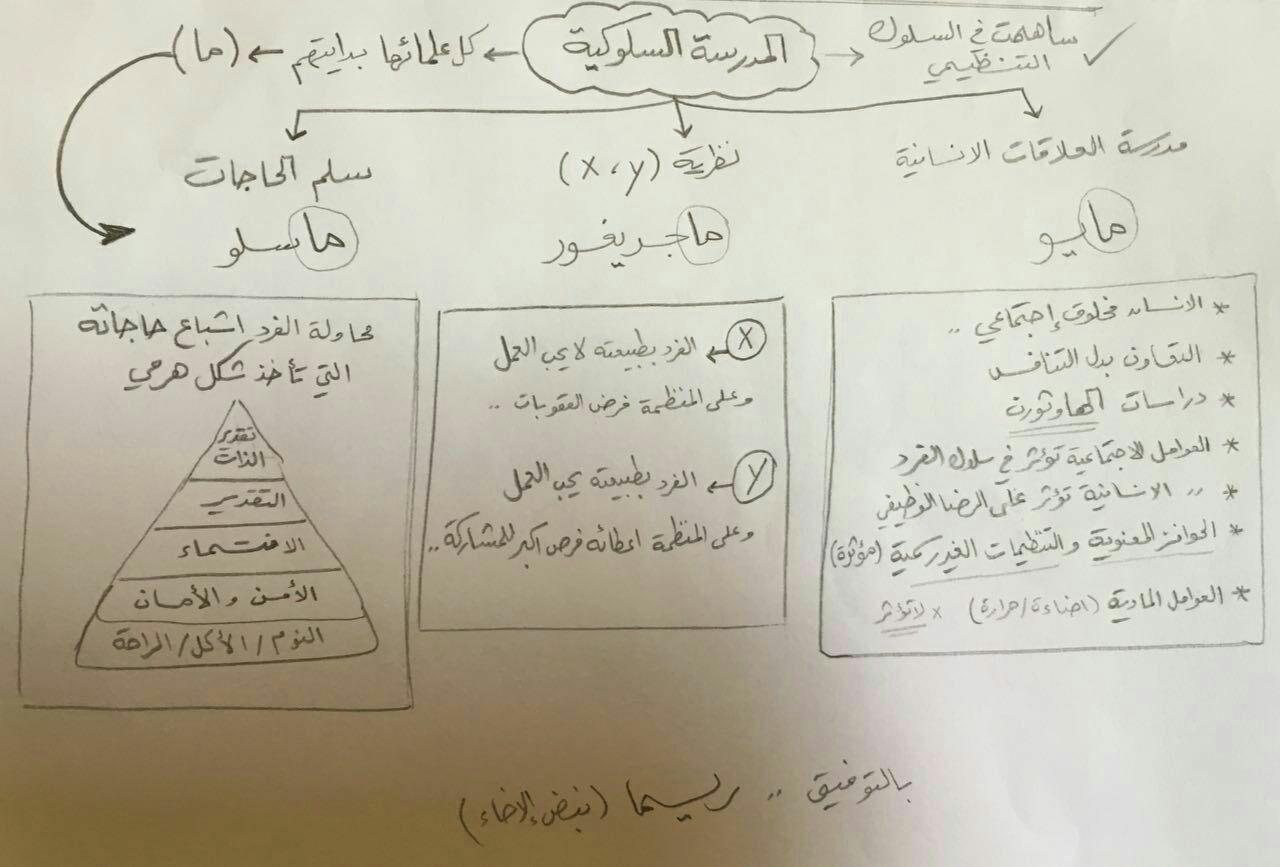 المدرسة السلوكية
ساهمت في السلوك
التنظيمي
كل علمائها بدايتهم ← (ما)
مدرسة العلاقات الانسانية
مايو
* الانسان مخلوق إجتماعي ..
* التعاون بدل التنافس
* دراسات الهاوثورن
* العوامل الاجتماعية تؤثر في سلوك الفرد
* ,, الانسانية تؤثر على الرضا الوظيفي
* الحوافز المعنوية والتنظيمات الغير رسمية (مؤثرة)
* العوامل المادية (اضاءة/حرارة) x لاتؤثر
نظرية (x، y)
ماجريغور
X ← الفرد بطبيعته لا يحب العمل
وعلى المنظمة فرض العقوبات ..
y ← الفرد بطبيعته يحب العمل
وعلى المنظمة اعطائه فرص اكبر للمشاركة ..
سلم الحاجات
ماسلو
محاولة الفرد اشباع حاجاته
التي تأخذ شكل هرمي
تقدير
الذات
التقدير
الانتماء
الأمن والأمان
النوم/الأكل/الراحة
بالتوفيق .. ريسما (نبض الإخاء)